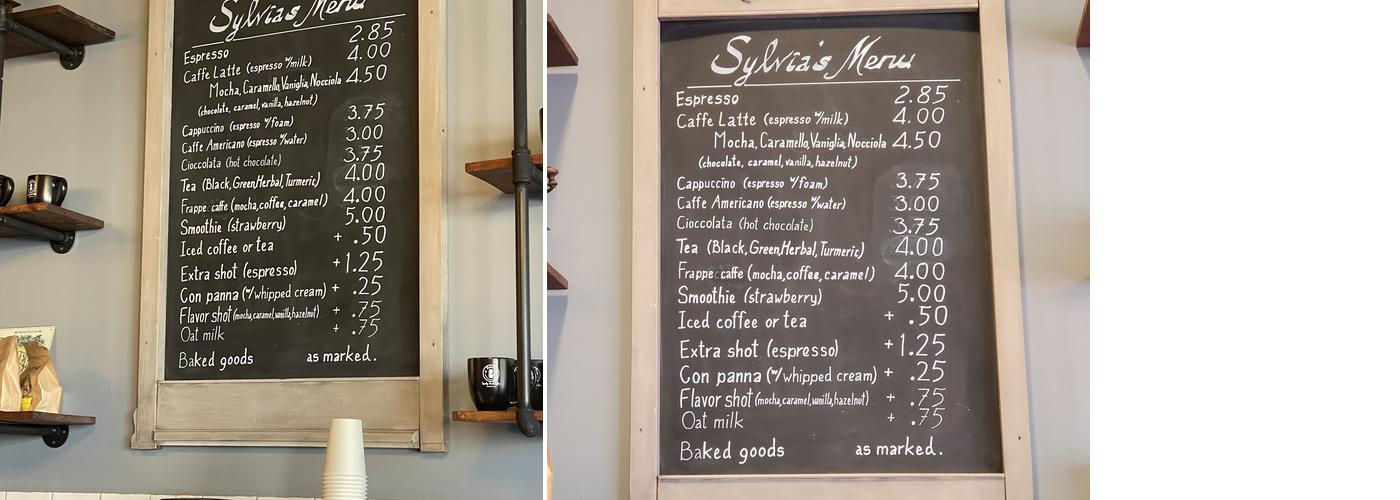 Sylvia's Menu
Espresso 2.85
Caffe Latte (espresso w/milk) 4.00
Mocha, Caramello, Vaniglia, Nocciola 4.50
(chocolate, caramel, vanilla, hazelnut)
Cappuccino (espresso w/foam) 3.75
Caffe Americano (espresso w/water) 3.00
Cioccolata (hot chocolate) 3.75
Tea (Black, Green, Herbal, Turmeric) 4.00
Frappe caffe (mocha, coffee, caramel) 4.00
Smoothie (strawberry) 5.00
Iced coffee or tea + .50
Extra shot (espresso) +1.25
Con panna (w/ whipped cream) + .25
Flavor shot (mocha, caramel, vanilla, hazelnut) + .75
Oat milk + .75
Baked goods as marked.
Sylvia's Menu
Espresso 2.85
Caffe Latte (espresso w/milk) 4.00
Mocha, Caramello, Vaniglia, Nocciola 4.50
(chocolate, caramel, vanilla, hazelnut)
Cappuccino (espresso w/foam) 3.75
Caffe Americano (espresso w/water) 3.00
Cioccolata (hot chocolate) 3.75
Tea (Black, Green, Herbal, Turmeric) 4.00
Frappe caffe (mocha, coffee, caramel) 4.00
Smoothie (strawberry) 5.00
Iced coffee or tea + .50
Extra shot (espresso) +1.25
Con panna (w/ whipped cream) + .25
Flavor shot (mocha, caramel, vanilla, hazelnut) + .75
Oat milk + .75
Baked goods as marked.